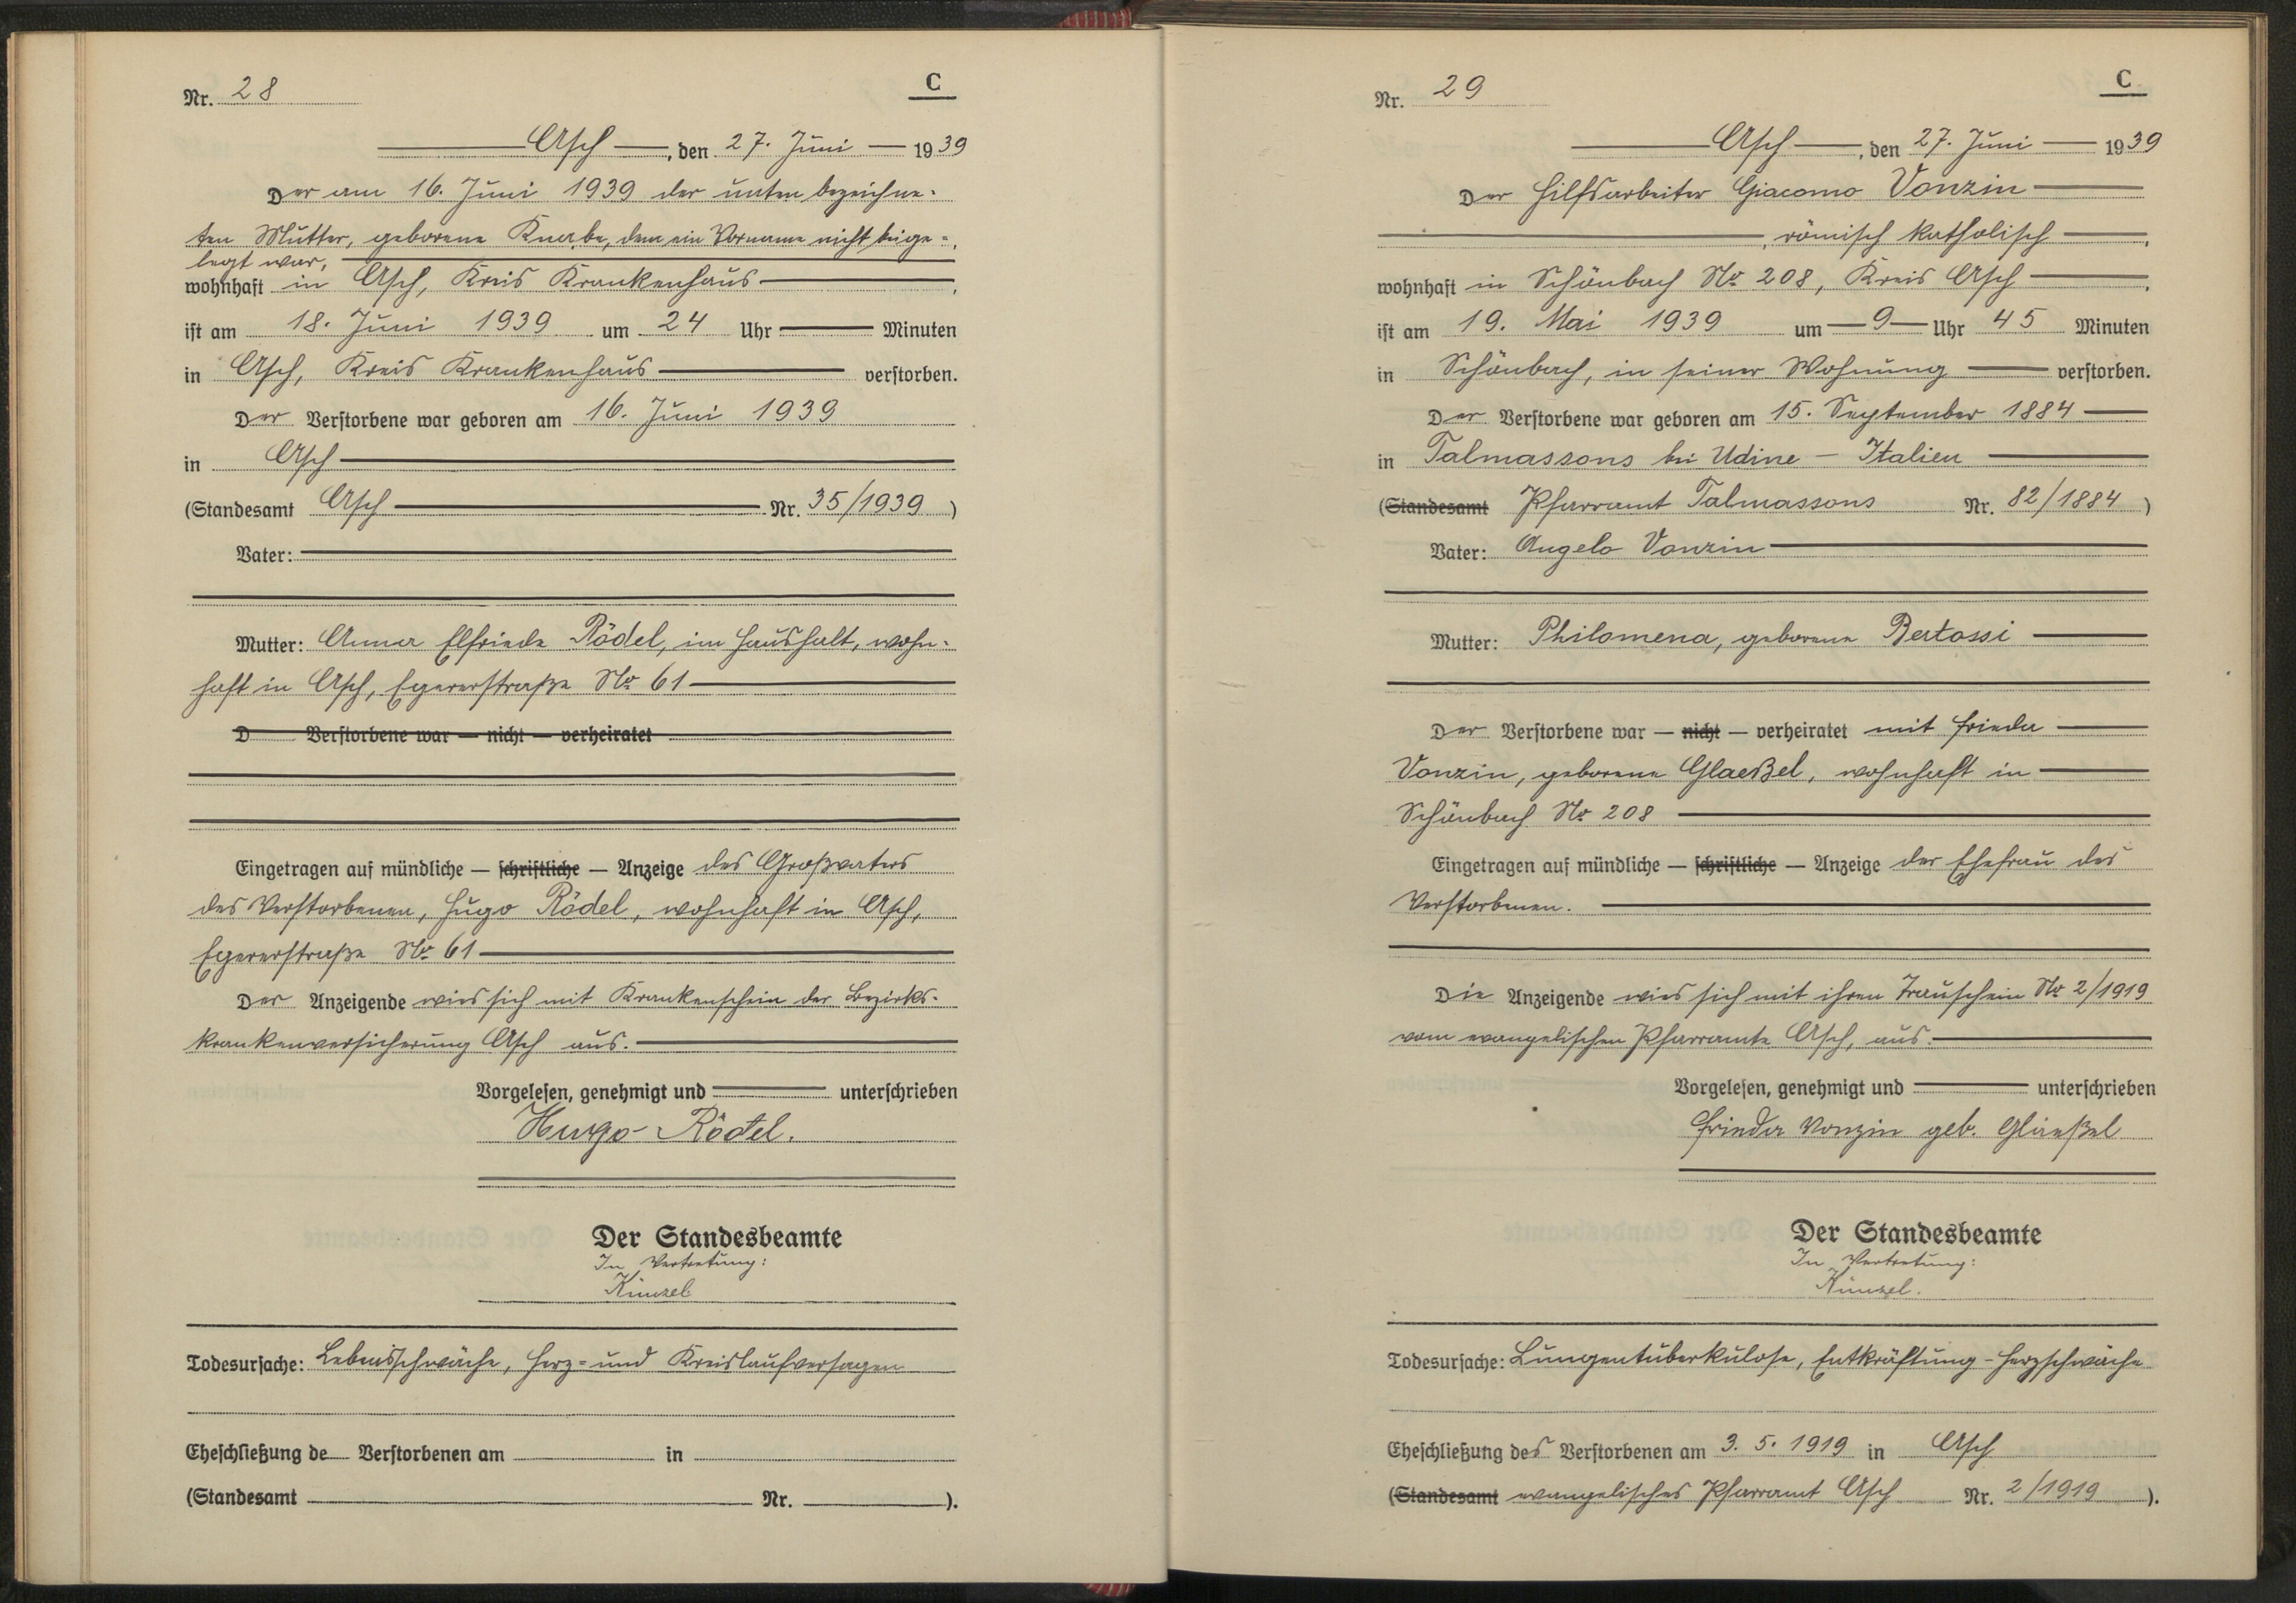 Nr. 28
C
Asch, den 27. Juni 1939
Der am 16. Juni 1939 der unten bezeichne-
ten Mutter, geborene Knabe, dem ein Vorname nicht beige-
legt war,
wohnhaft in Asch, Kreis Krankenhaus
ist am 18. Juni 1939 um 24 Uhr Minuten
in Asch, Kreis Krankenhaus verstorben.
Der Verstorbene war geboren am 16. Juni 1939
in Asch
(Standesamt Asch Nr. 35/1939)
Vater:
Mutter: Anna Elfriede Rödel, im Haushalt, wohn-
haft in Asch, Egererstraße No 61
D Verstorbene war — nicht — verheiratet
Eingetragen auf mündliche — schriftliche — Anzeige des Großvaters
des Verstorbenen, Hugo Rödel, wohnhaft in Asch,
Egererstraße No 61
Der Anzeigende wies sich mit Krankenschein der Bezirks-
krankenversicherung Asch aus.
Vorgelesen, genehmigt und unterschrieben
Hugo Rödel.
Der Standesbeamte
In Vertretung:
Künzel
Todesursache: Lebensschwäche, Herz- und Kreislaufversagen
Eheschließung de Verstorbenen am in
(Standesamt Nr. ).
Nr. 29
C
Asch, den 27. Juni 1939
Der Hilfsarbeiter Giacomo Vonzin
, römisch katholisch,
wohnhaft in Schönbach No 208, Kreis Asch,
ist am 19. Mai 1939 um 9 Uhr 45 Minuten
in Schönbach, in seiner Wohnung verstorben.
Der Verstorbene war geboren am 15. September 1884
in Talmassons bei Udine - Italien
(Standesamt Pfarramt Talmassons Nr. 82/1884)
Vater: Angelo Vonzin
Mutter: Philomena, geborene Bertossi
Der Verstorbene war — nicht — verheiratet mit Frieda
Vonzin, geborene Glaeßel, wohnhaft in
Schönbach No 208
Eingetragen auf mündliche — schriftliche — Anzeige der Ehefrau des
Verstorbenen.
Die Anzeigende wies sich mit ihren Trauschein No 2/1919
vom evangelischen Pfarramte Asch, aus.
Vorgelesen, genehmigt und unterschrieben
Frieda Vonzin geb. Glaeßel
Der Standesbeamte
In Vertretung:
Künzel.
Todesursache: Lungentuberkulose, Entkräftung - Herzschwäche
Eheschließung des Verstorbenen am 3. 5. 1919 in Asch
(Standesamt evangelisches Pfarramt Asch Nr. 2/1919).